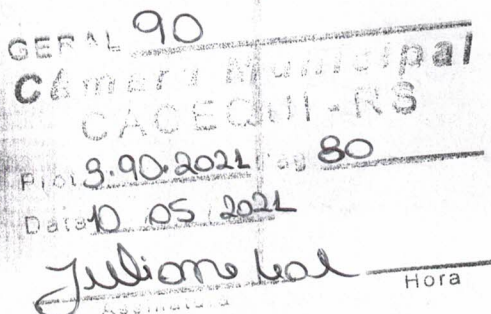 GERAL 90
Câmara Municipal
CACEQUI - RS
Prot 3.90.2021 Pag 80
Data 10 05 2021
Juliane Leal Hora
Assinatura